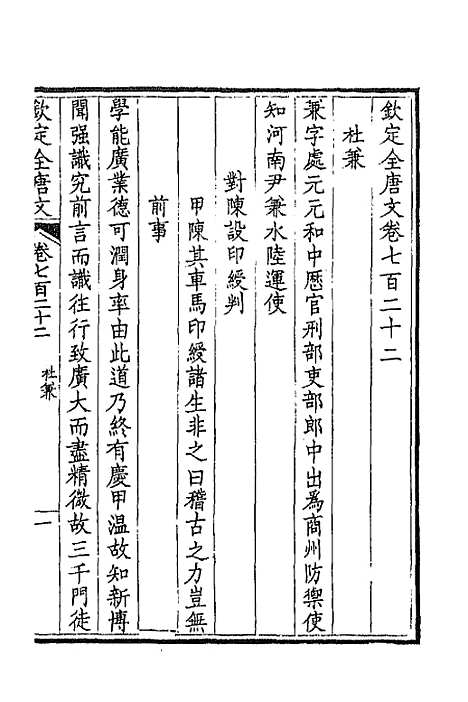 欽定全唐文卷七百二十二
杜兼
兼字處元元和中歷官刑部吏部郎中出為商州防禦使
知河南尹兼水陸運使
對陳設印綬判
甲陳其車馬印綬諸生非之曰稽古之力豈無
前事
學能廣業德可潤身率由此道乃終有慶甲温故知新博
聞强識究前言而識往行致廣大而盡精微故三千門徒
欽定全唐文 卷七百二十二 杜兼 一